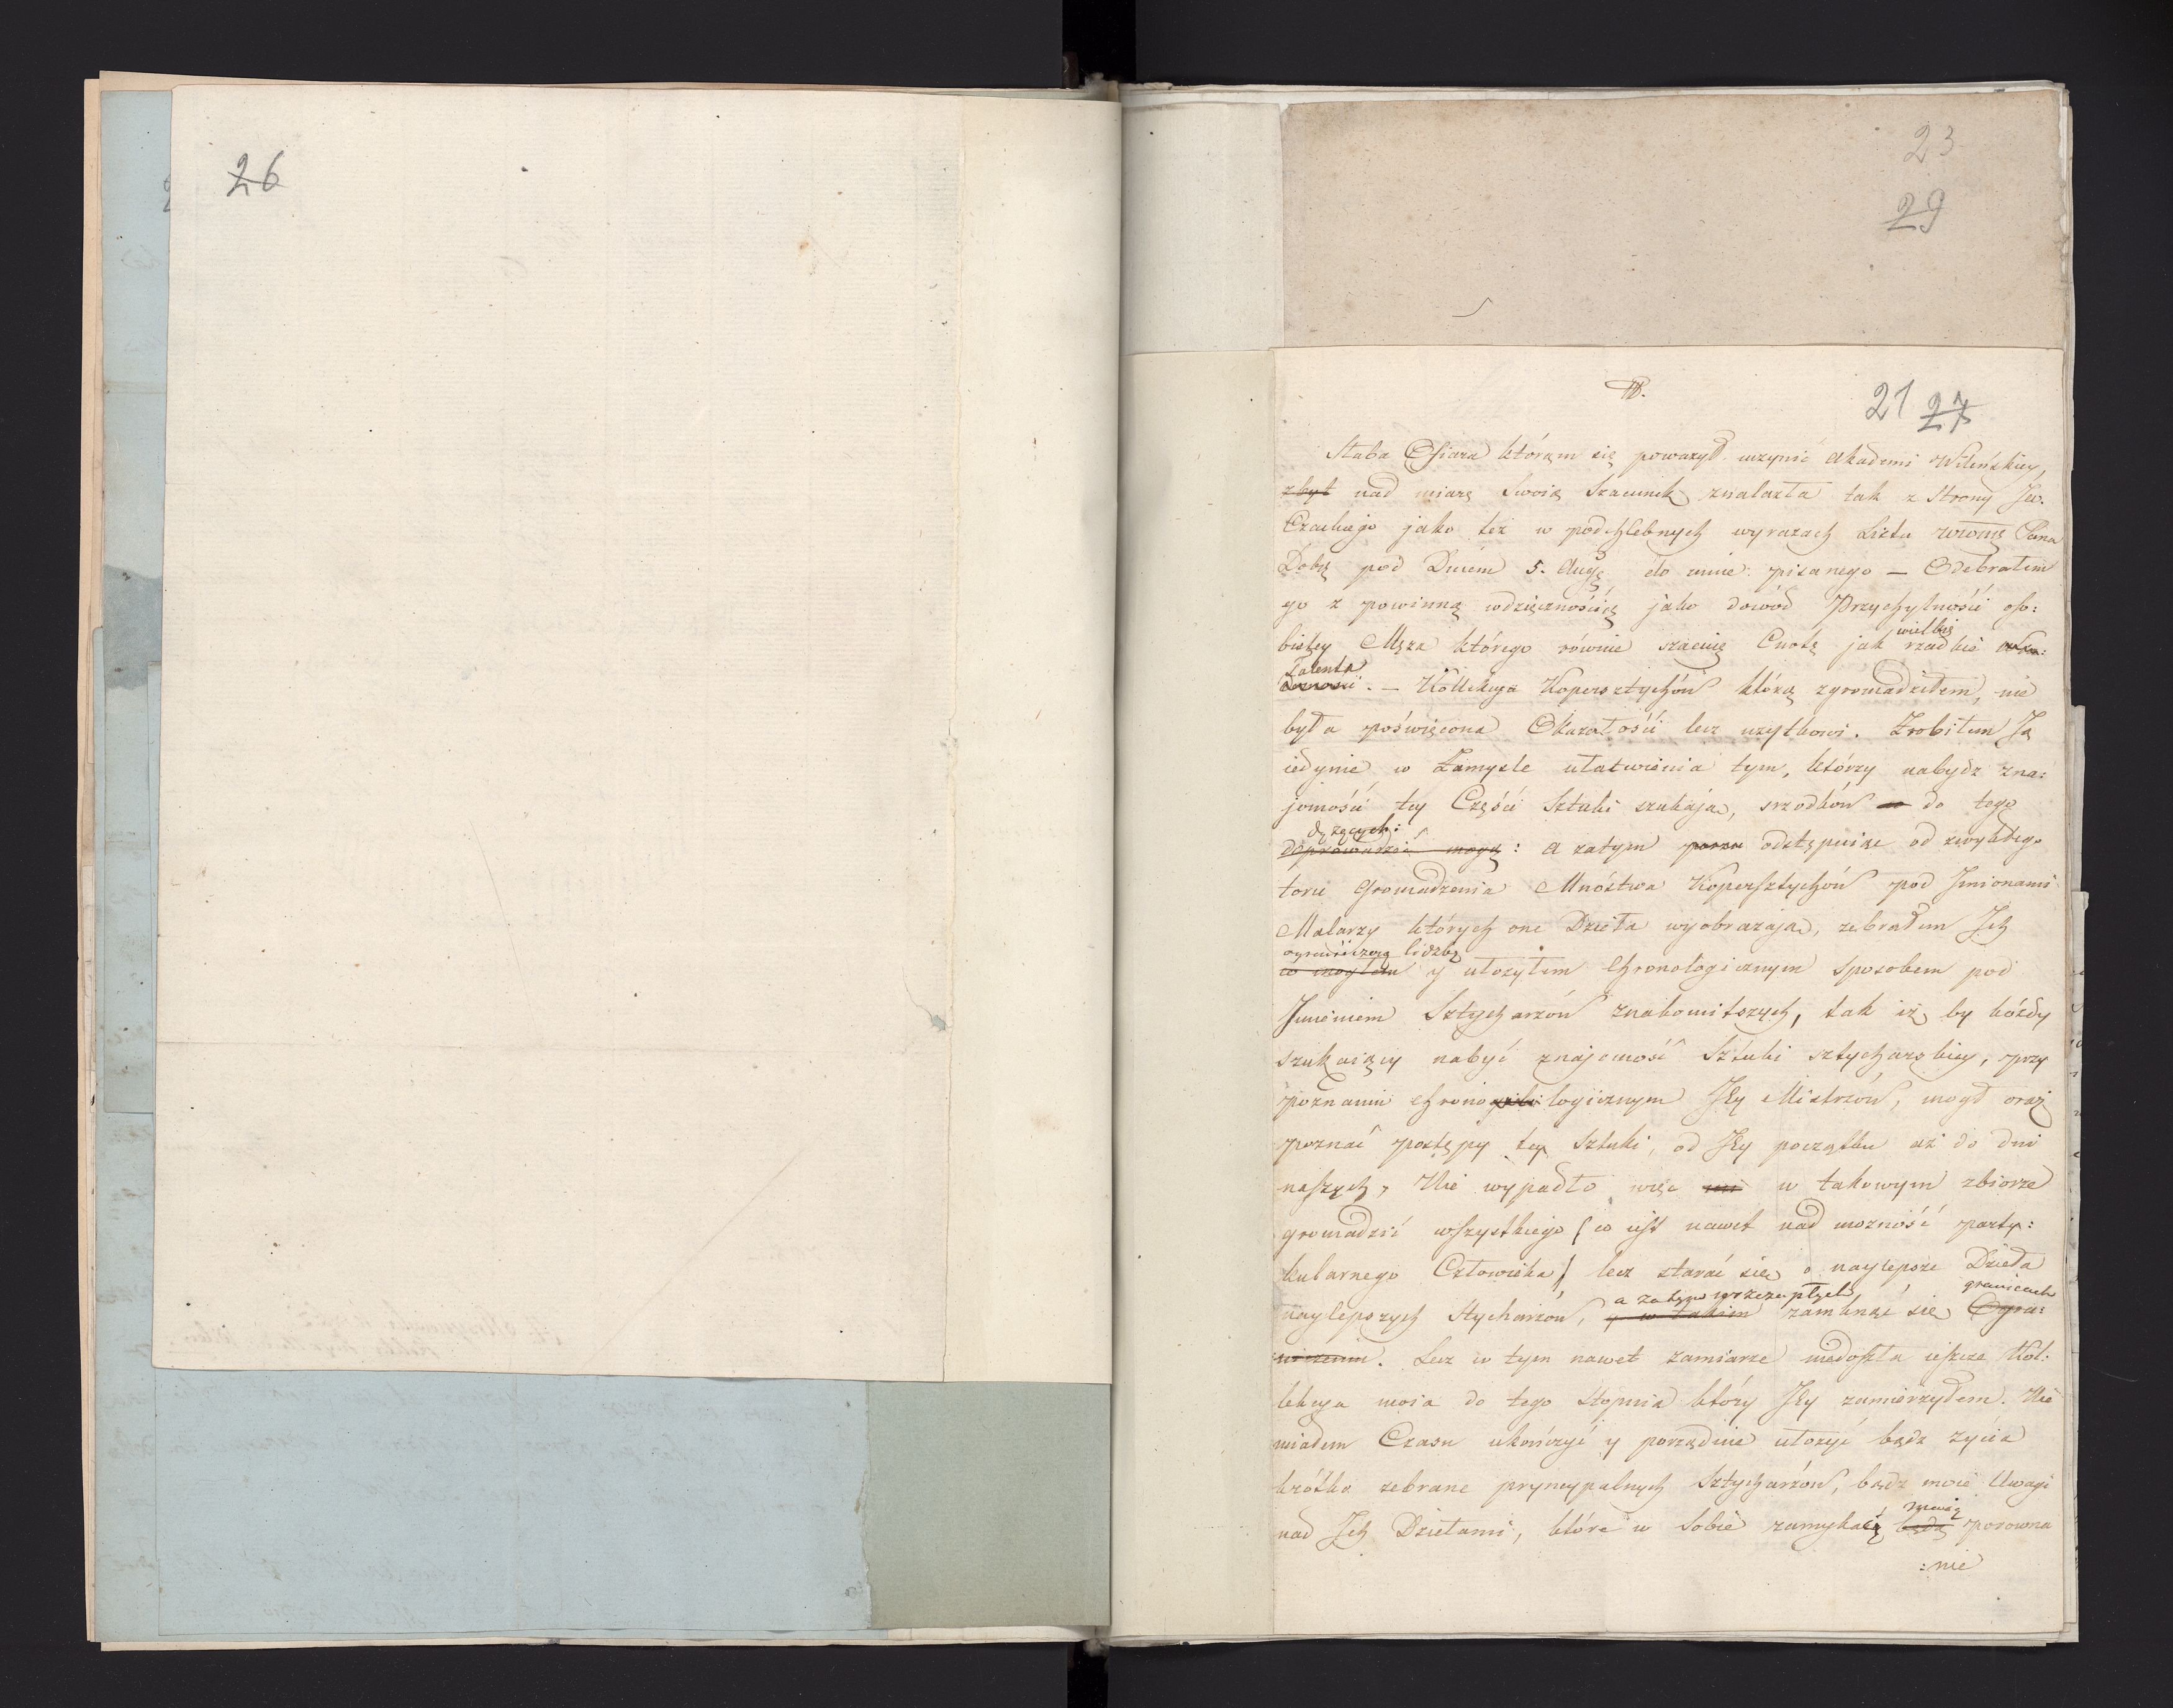 26
23
29
21 27
Słaba Ofiara którąm się poważył uczynić Akademi Wileńskiey,
zbyt nad miarę Swoię Szacunek znalazła tak z Strony Jw.
Czackiego jako też w podchlebnych wyrazach Listu Pana
Dobr pod Dniem 5. Aug do mnie pisanego — Odebrałem
go z powinną wdzięcznością jako dowód Przychylności oso:
bistey Męża którego równie szacuię Cnotę jak rzadkie
wielbię
Talenta
. — Kollekcya Kopersztychów którą zgromadziłem, nie
była poświęcona Okazałości lecz użytkowi. Zrobiłem Ją
iedynie w Zamysle ułatwienia tym, którzy nabydz zna:
jomość tey Części Sztuki szukają, srzodków do tego
dążących:
doprowadzić mogą: a zatym odstępuiąc od zwykłego
toru Gromadzenia Mnóstwa Kopersztychów pod Jmionami
Malarzy których one Dzieła wyobrażają, zebrałem Jch
ograniczoną liczbę
co mogłem y ułożyłem Chronologicznym sposobem pod
Jmieniem Sztycharzów znakomitszych, tak iż by kóżdy
szukaiący nabyć znajomość Sztuki sztycharskiey, przy
poznaniu Chronologicznym Jey Mistrzów, mogł oraz
poznać postępy tey Sztuki, od Jey początku aż do dni
naszych, Nie wypadło więc w takowym zbiorze
gromadzić wszystkiego (co iest nawet nad możność party:
kularnego Człowieka) lecz starać się o naylepsze Dzieła
a zatym w szczupłych granicach
naylepszych Stycharzów, y w takim zamknąć się Ogra:
niczeniu. Lecz w tym nawet zamiarze niedoszła ieszcze Kol:
lekcya moia do tego Stopnia który Jey zamierzyłem. Nie
miałem Czasu ukończyć y porządnie ułożyć bądz życia
krótko zebrane pryncypalnych Sztycharzów, bądz moie Uwagi
nad Jch Dziełami, które w Sobie zamykać będą porowna
maią
:nie